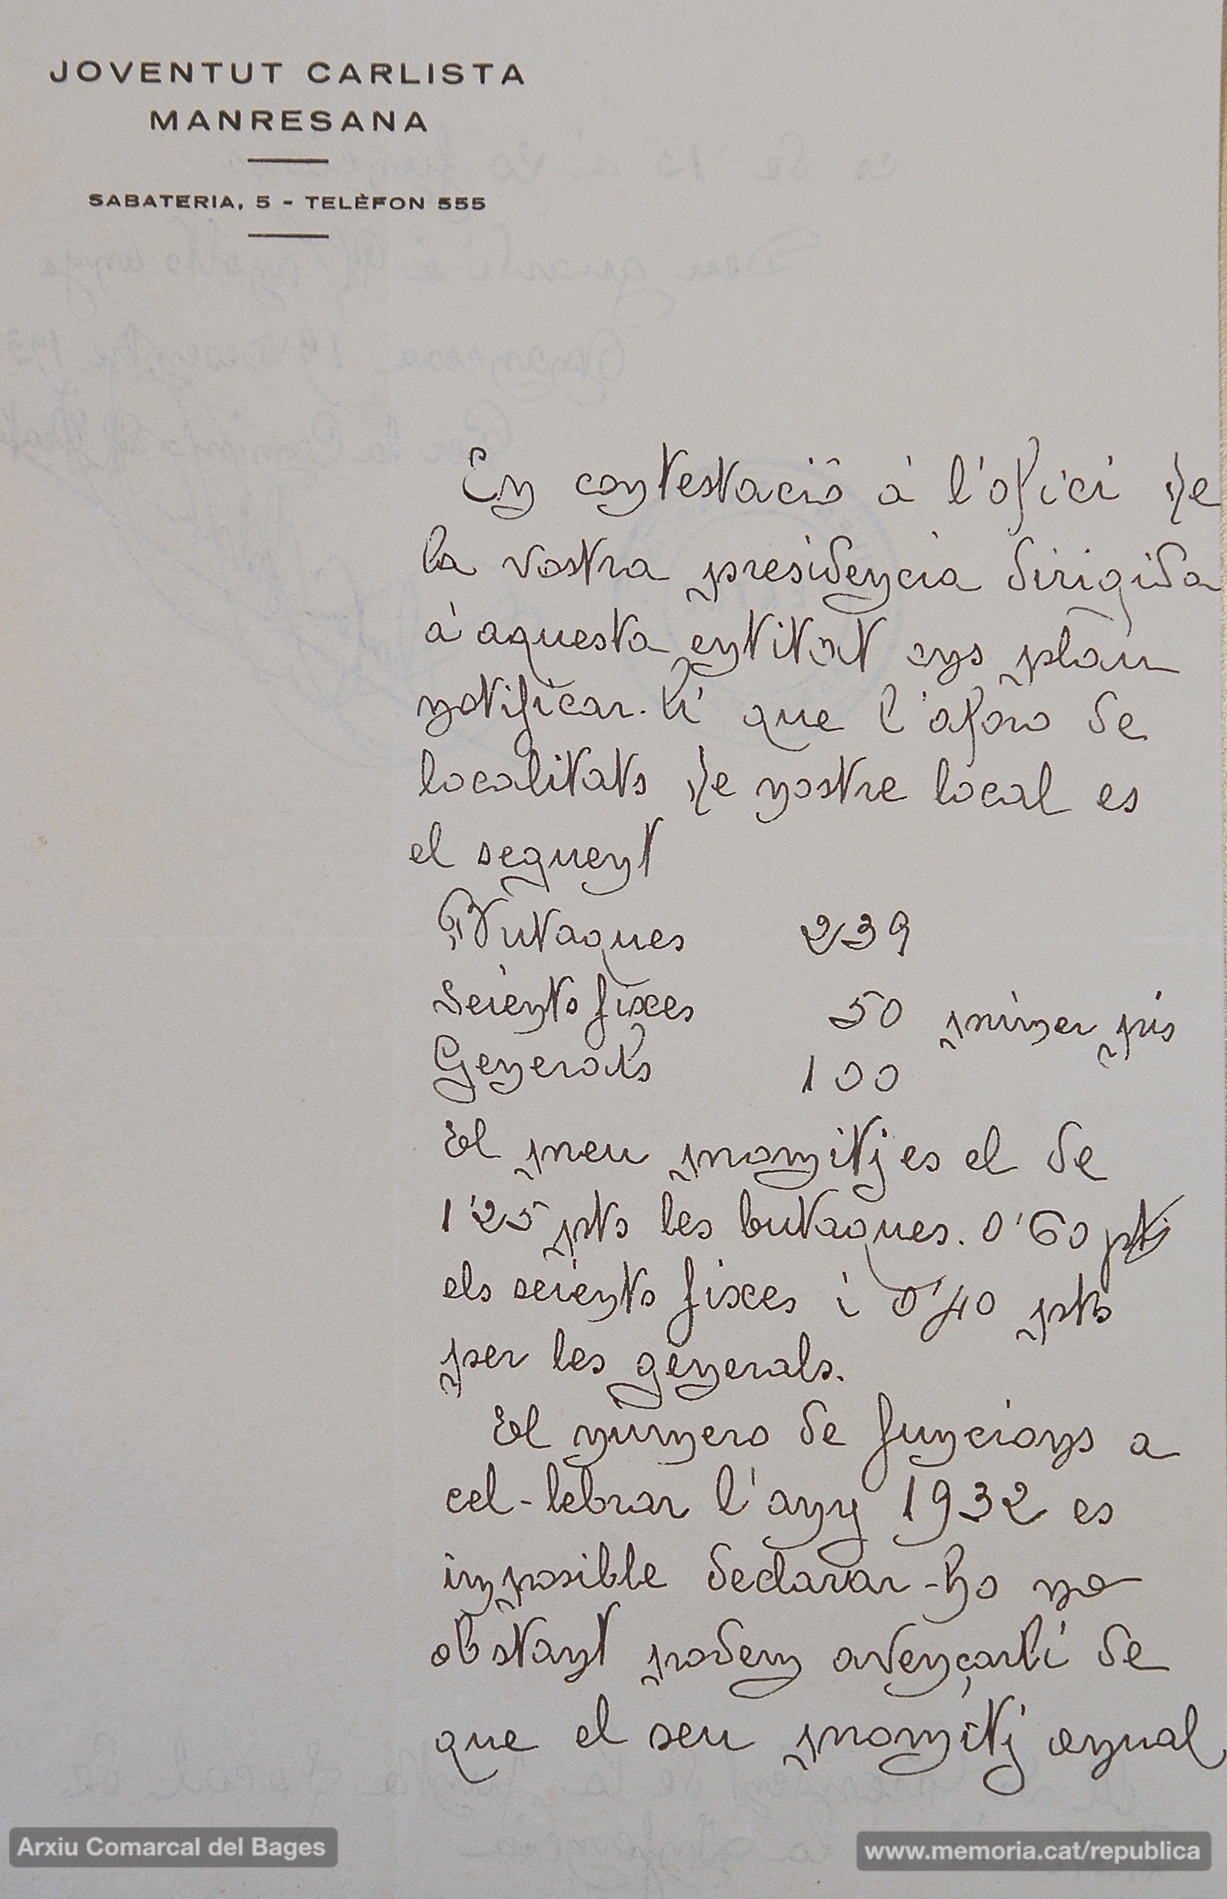 JOVENTUT CARLISTA
MANRESANA
SABATERIA, 5 - TELÈFON 555
En contestació á l'ofici de
la vostra presidencia dirigida
á aquesta entitat ens plau
notificar-li que l'aforo de
localitats de nostre local es
el seguent
Butaques 239
Seients fixes 50 primer pis
Generals 100
El preu promitj es el de
1'25 pts les butaques. 0'60 pts
els seients fixes i 0'40 pts
per les generals.
El número de funcions a
cel-lebrar l'any 1932 es
imposible declarar-ho no
obstant podem avençarli de
que el seu promitj anual
Arxiu Comarcal del Bages
www.memoria.cat/republica